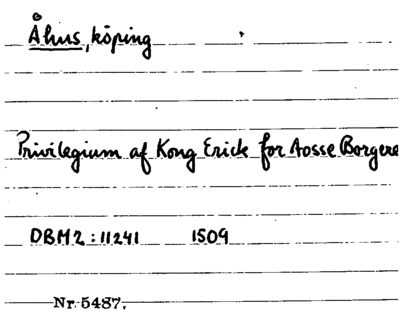 Åhus, köping
Privilegium af Kong Erick for Aosse Borgere
DBM2:11241 1509
Nr. 5487.